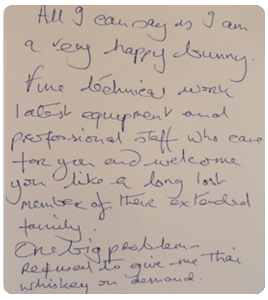 All I can say is I am
a very happy bunny.
Fine technical work
latest equipment and
professional staff who care
for you and welcome
you like a long lost
member of there extended
family.
One big problem -
Refused to give me Thai
whiskey on demand.